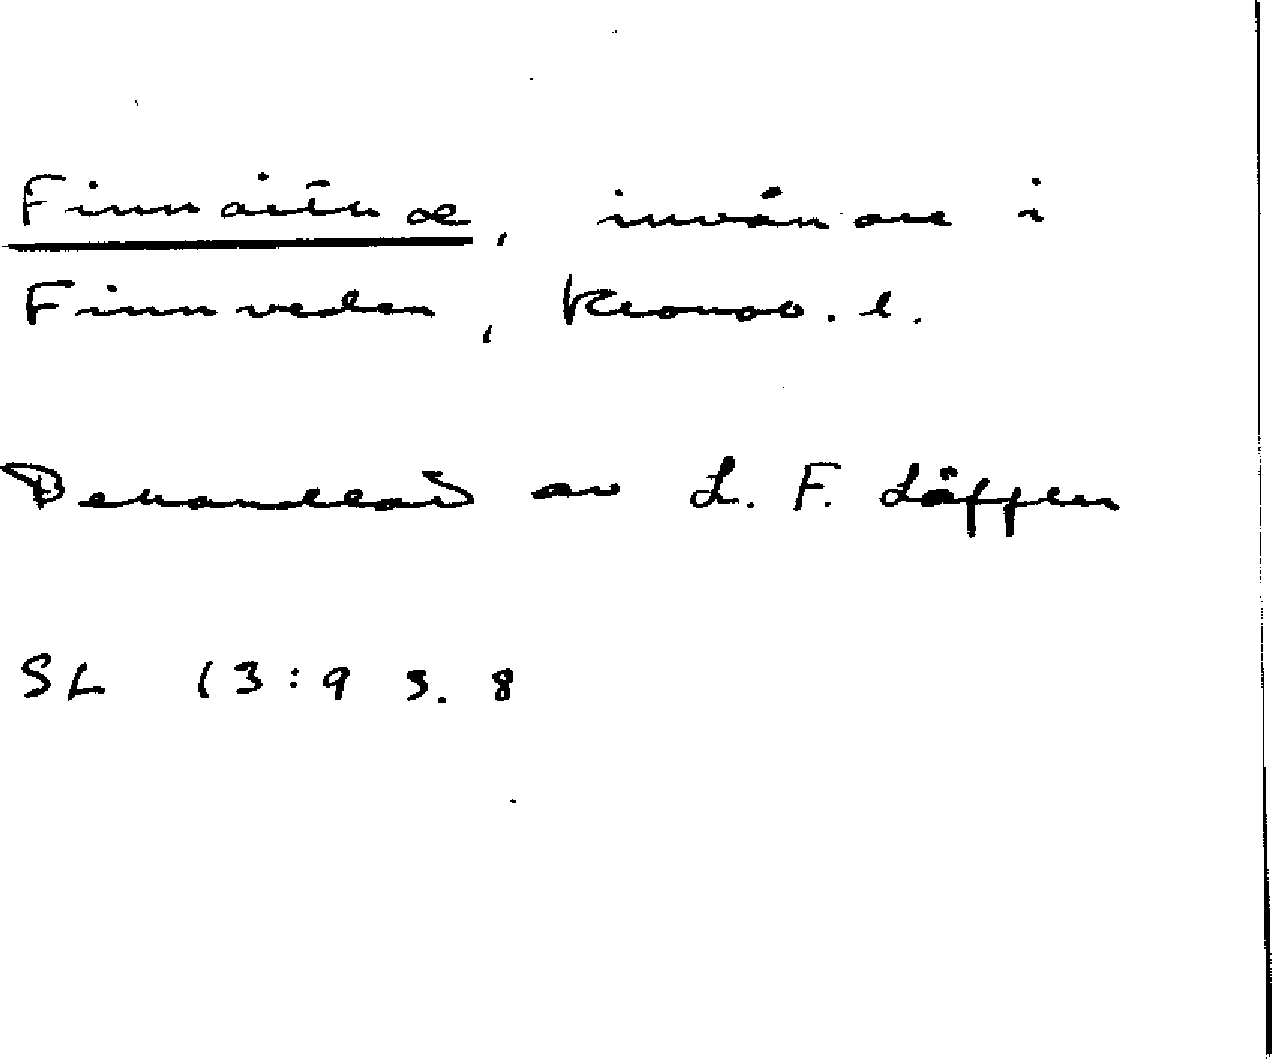 Finnaithae, invånare i
Finnveden, Kronob. l.
Behandlad av L. F. Läffler
SL 13:9 s. 8